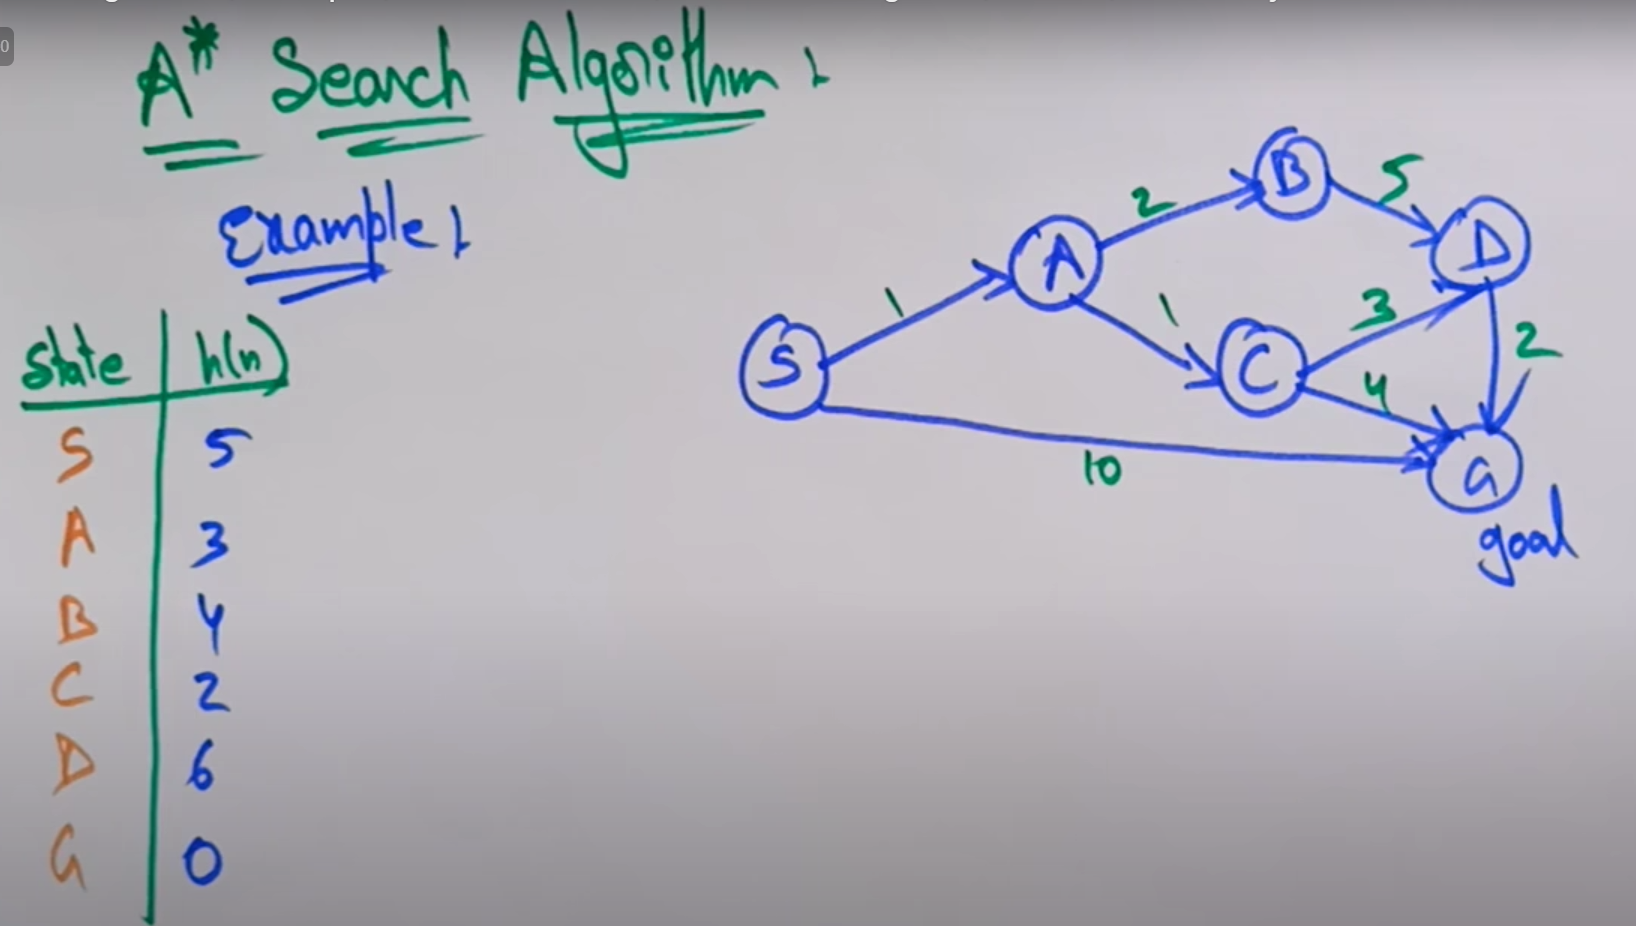 A* Search Algorithm :
Example :
State h(n)
S 5
A 3
B 4
C 2
D 6
G 0
S
A
B
C
D
G
1
2
1
5
3
4
2
10
goal